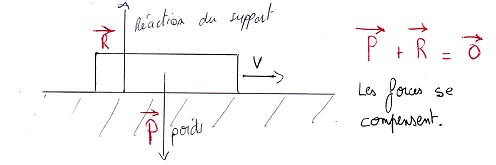 Réaction du support
R
V
P
poids
P + R = O
Les forces se
compensent.